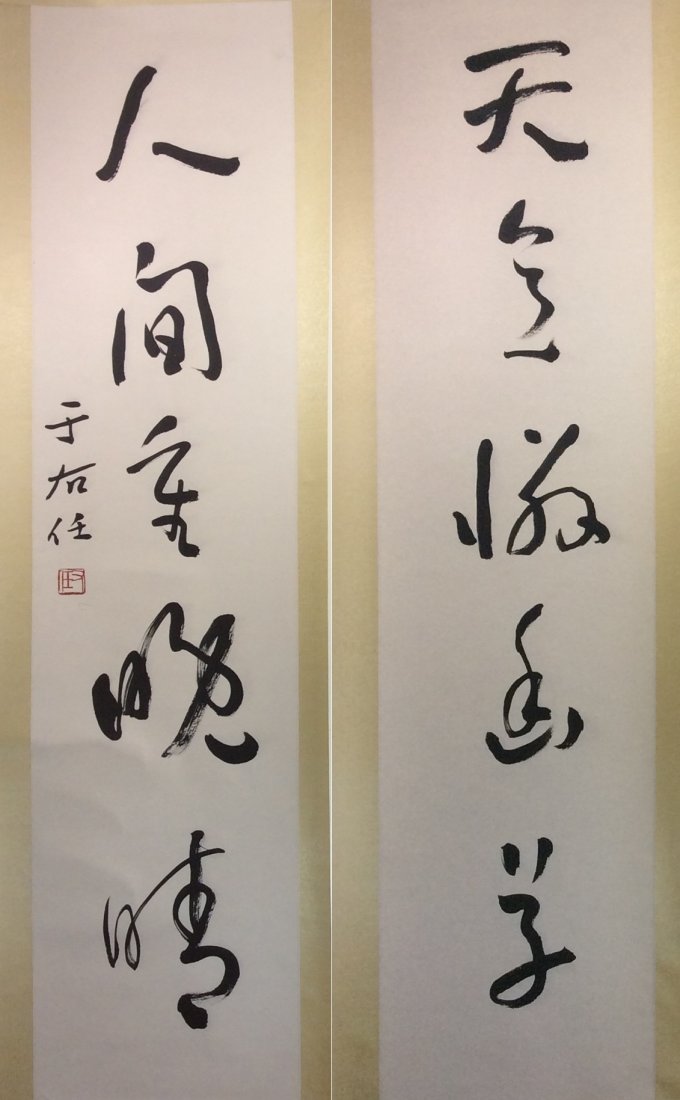 天意憐幽草
人間重晚晴
于右任
右任